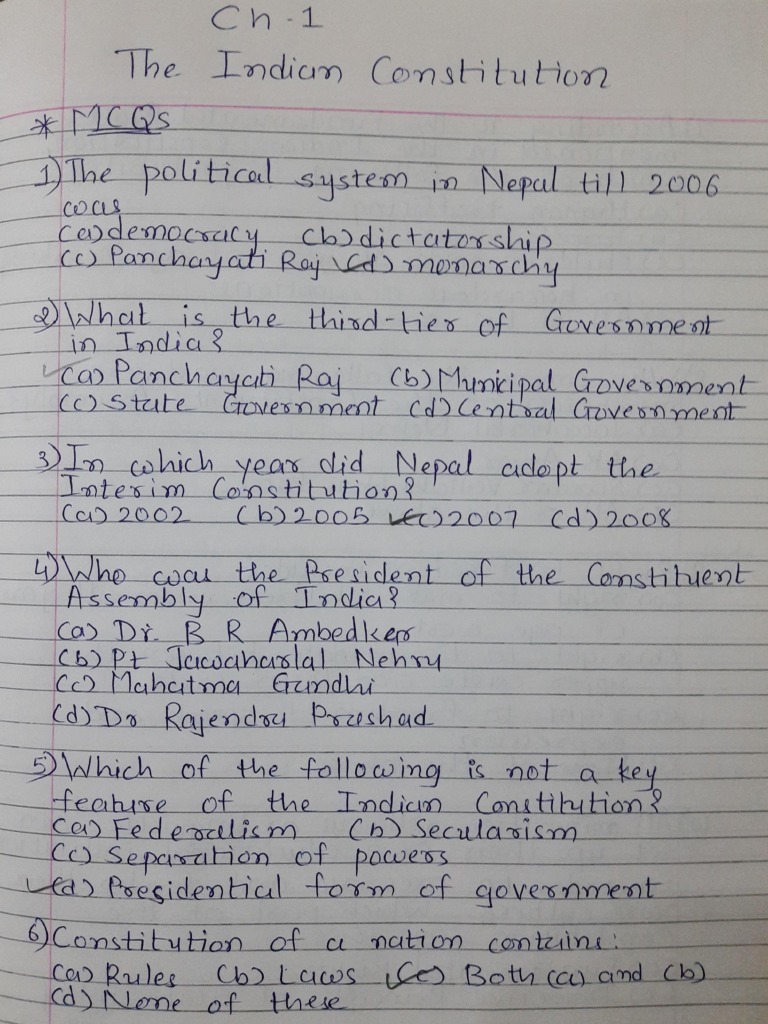 Ch-1
The Indian Constitution
* MCQs
1) The political system in Nepal till 2006
was
(a) democracy (b) dictatorship
(c) Panchayati Raj (d) monarchy
2) What is the third-tier of Government
in India?
(a) Panchayati Raj (b) Municipal Government
(c) State Government (d) Central Government
3) In which year did Nepal adopt the
Interim Constitution?
(a) 2002 (b) 2005 (c) 2007 (d) 2008
4) Who was the President of the Constituent
Assembly of India?
(a) Dr. B R Ambedker
(b) Pt Jawaharlal Nehru
(c) Mahatma Gandhi
(d) Dr Rajendra Prashad
5) Which of the following is not a key
feature of the Indian Constitution?
(a) Federalism (b) Secularism
(c) Separation of powers
(d) Presidential form of government
6) Constitution of a nation contains:
(a) Rules (b) Laws (c) Both (a) and (b)
(d) None of these